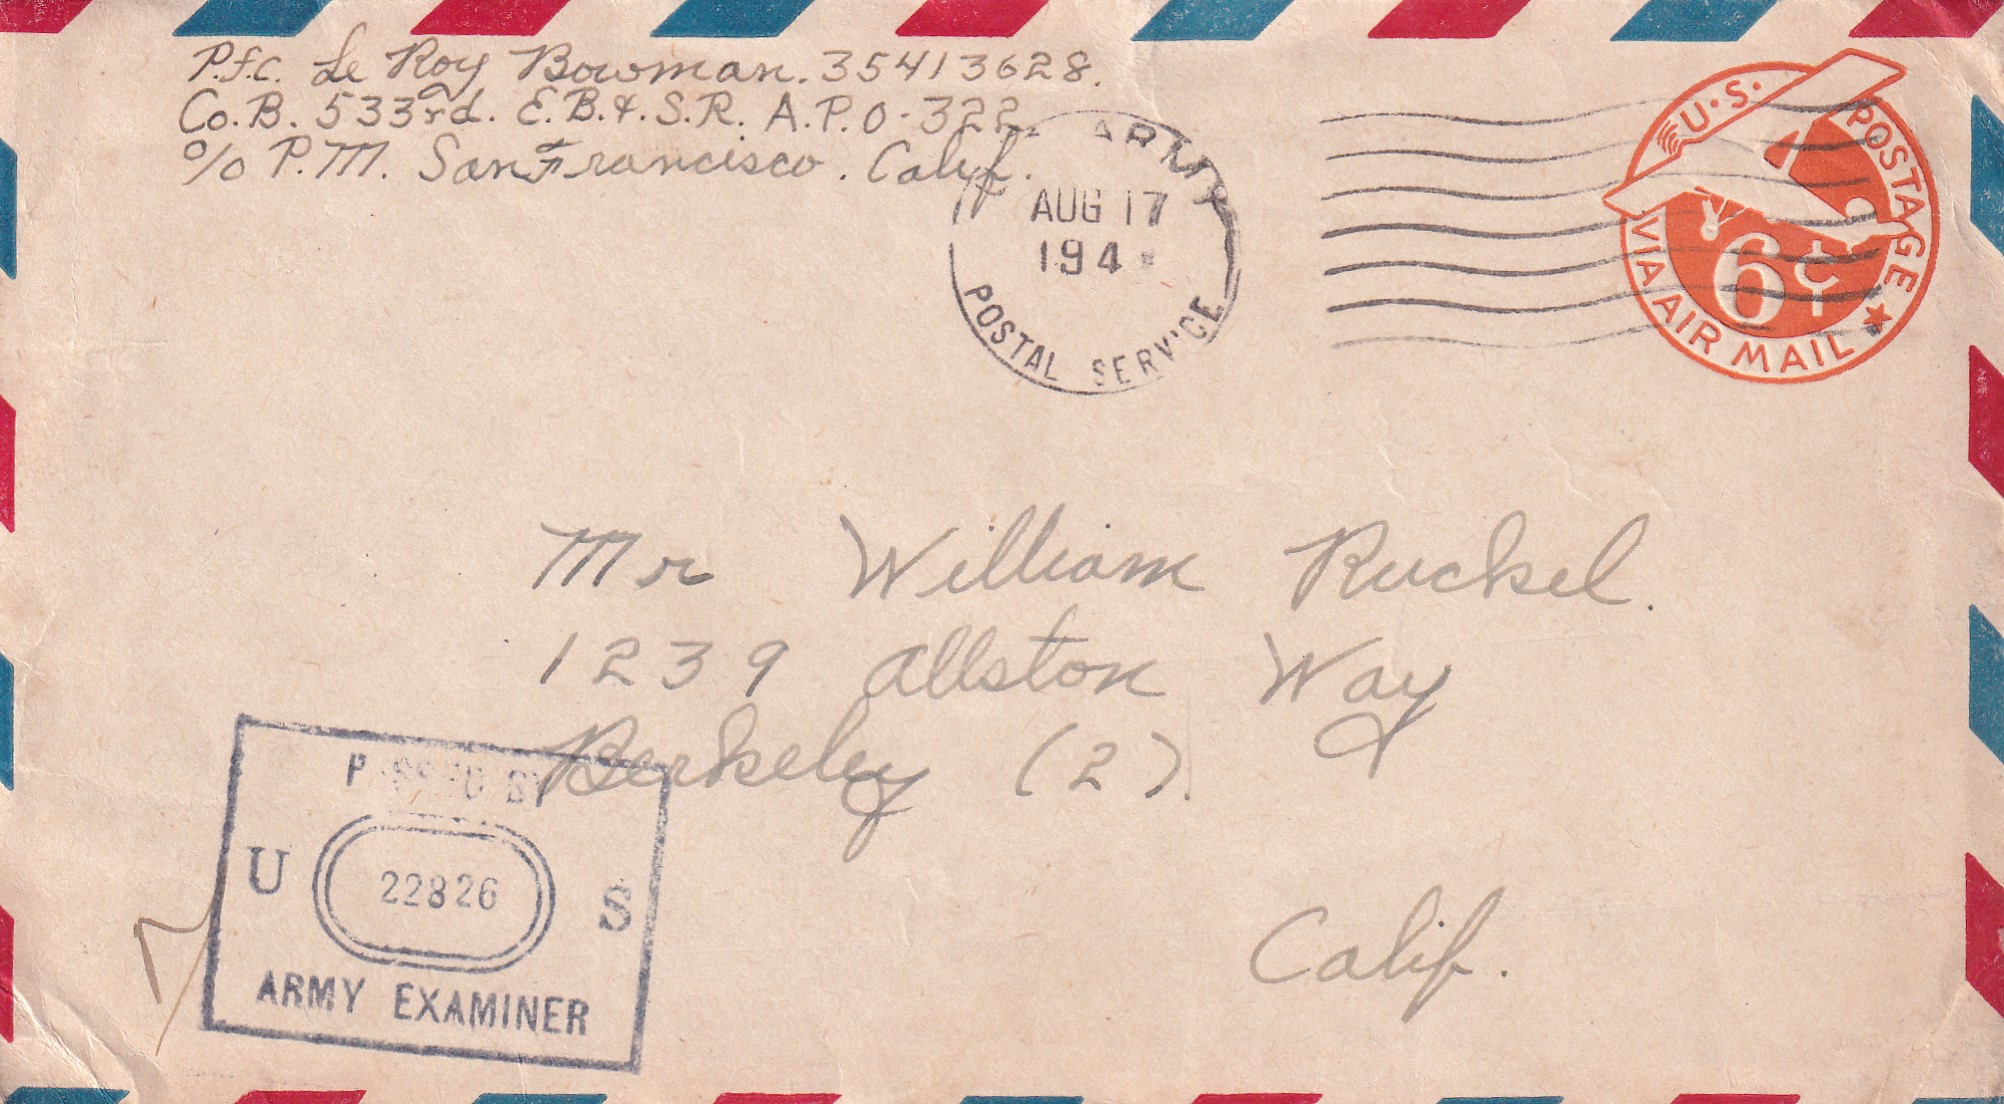 P.f.c. Le Roy Bowman. 35413628.
Co. B. 533rd. E.B.&.S.R. A.P.O-322
c/o P.M. San Francisco. Calif.
ARMY
AUG 17
194
POSTAL SERVICE
U.S. POSTAGE
6¢
VIA AIR MAIL
Mr William Ruckel.
1239 Allston Way
Berkeley (2).
Calif.
PASSED BY
U 22826 S
ARMY EXAMINER